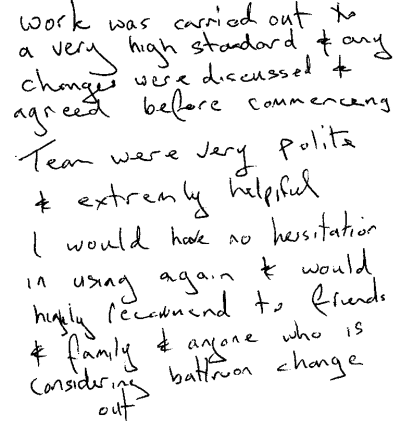 work was carried out to
a very high standard & any
changes were discussed &
agreed before commenceng
Team were very polite
& extremly helpful
I would have no hersitation
in using again & would
highly recommend to friends
& family & anyone who is
considering bathroom change
out